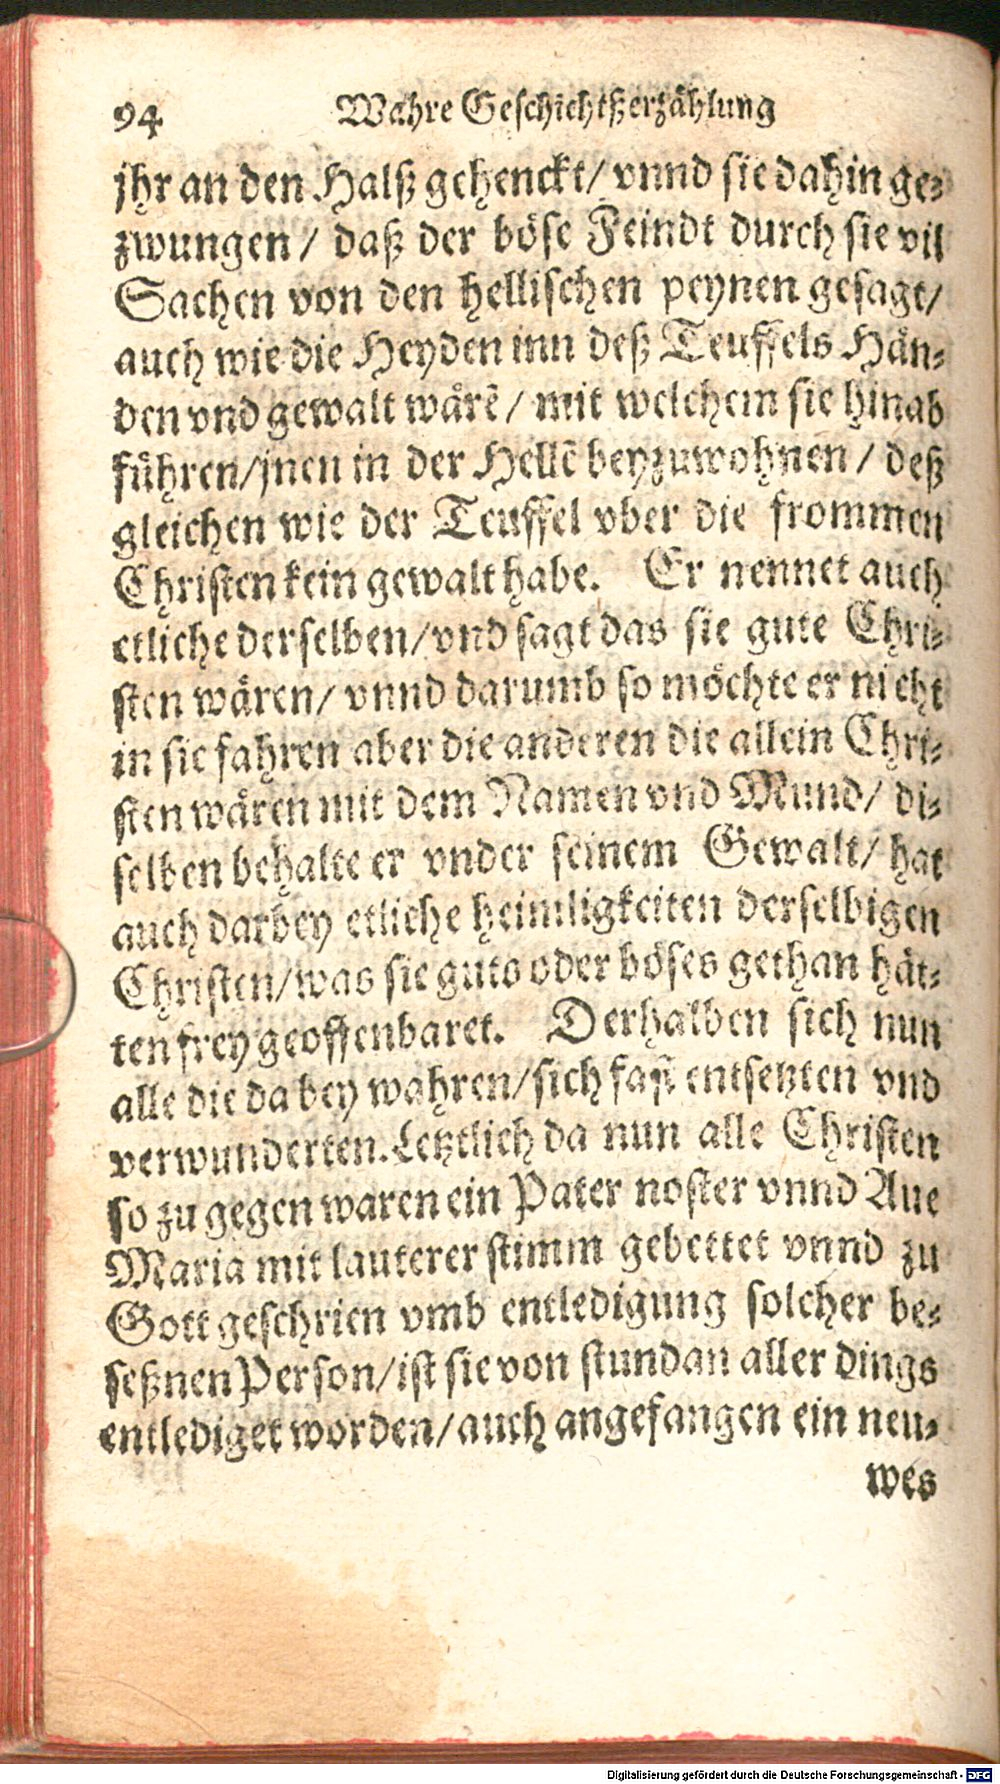 94 Wahre Geschichtßerzählung
jhr an den Halß gehenckt/ vnnd sie dahin ge-
zwungen/ daß der böse Feindt durch sie vil
Sachen von den hellischen peynen gesagt/
auch wie die Heyden inn deß Teuffels Hän-
den vnd gewalt wårẽ/ mit welchem sie hinab
führen/jnen in der Hellẽ beyzuwohnen/ deß
gleichen wie der Teuffel vber die frommen
Christen kein gewalt habe. Er nennet auch
etliche derselben/vnd sagt das sie gute Chri-
sten wären/ vnnd darumb so möchte er nicht
in sie fahren aber die anderen die allein Chri-
sten wären mit dem Namen vnd Mund/ di-
selben behalte er vnder seinem Gewalt/ hat
auch darbey etliche heimligkeiten derselbigen
Christen/was sie guts oder böses gethan hät-
ten frey geoffenbaret. Derhalben sich nun
alle die da bey wahren/sich fast entsetzten vnd
verwunderten. Letztlich da nun alle Christen
so zu gegen waren ein Pater noster vnnd Aue
Maria mit lauterer stimm gebettet vnnd zu
Gott geschrien vmb entledigung solcher be-
seßnen Person/ist sie von stundan aller dings
entlediget worden/auch angefangen ein neu-
wes
Digitalisierung gefördert durch die Deutsche Forschungsgemeinschaft - DFG